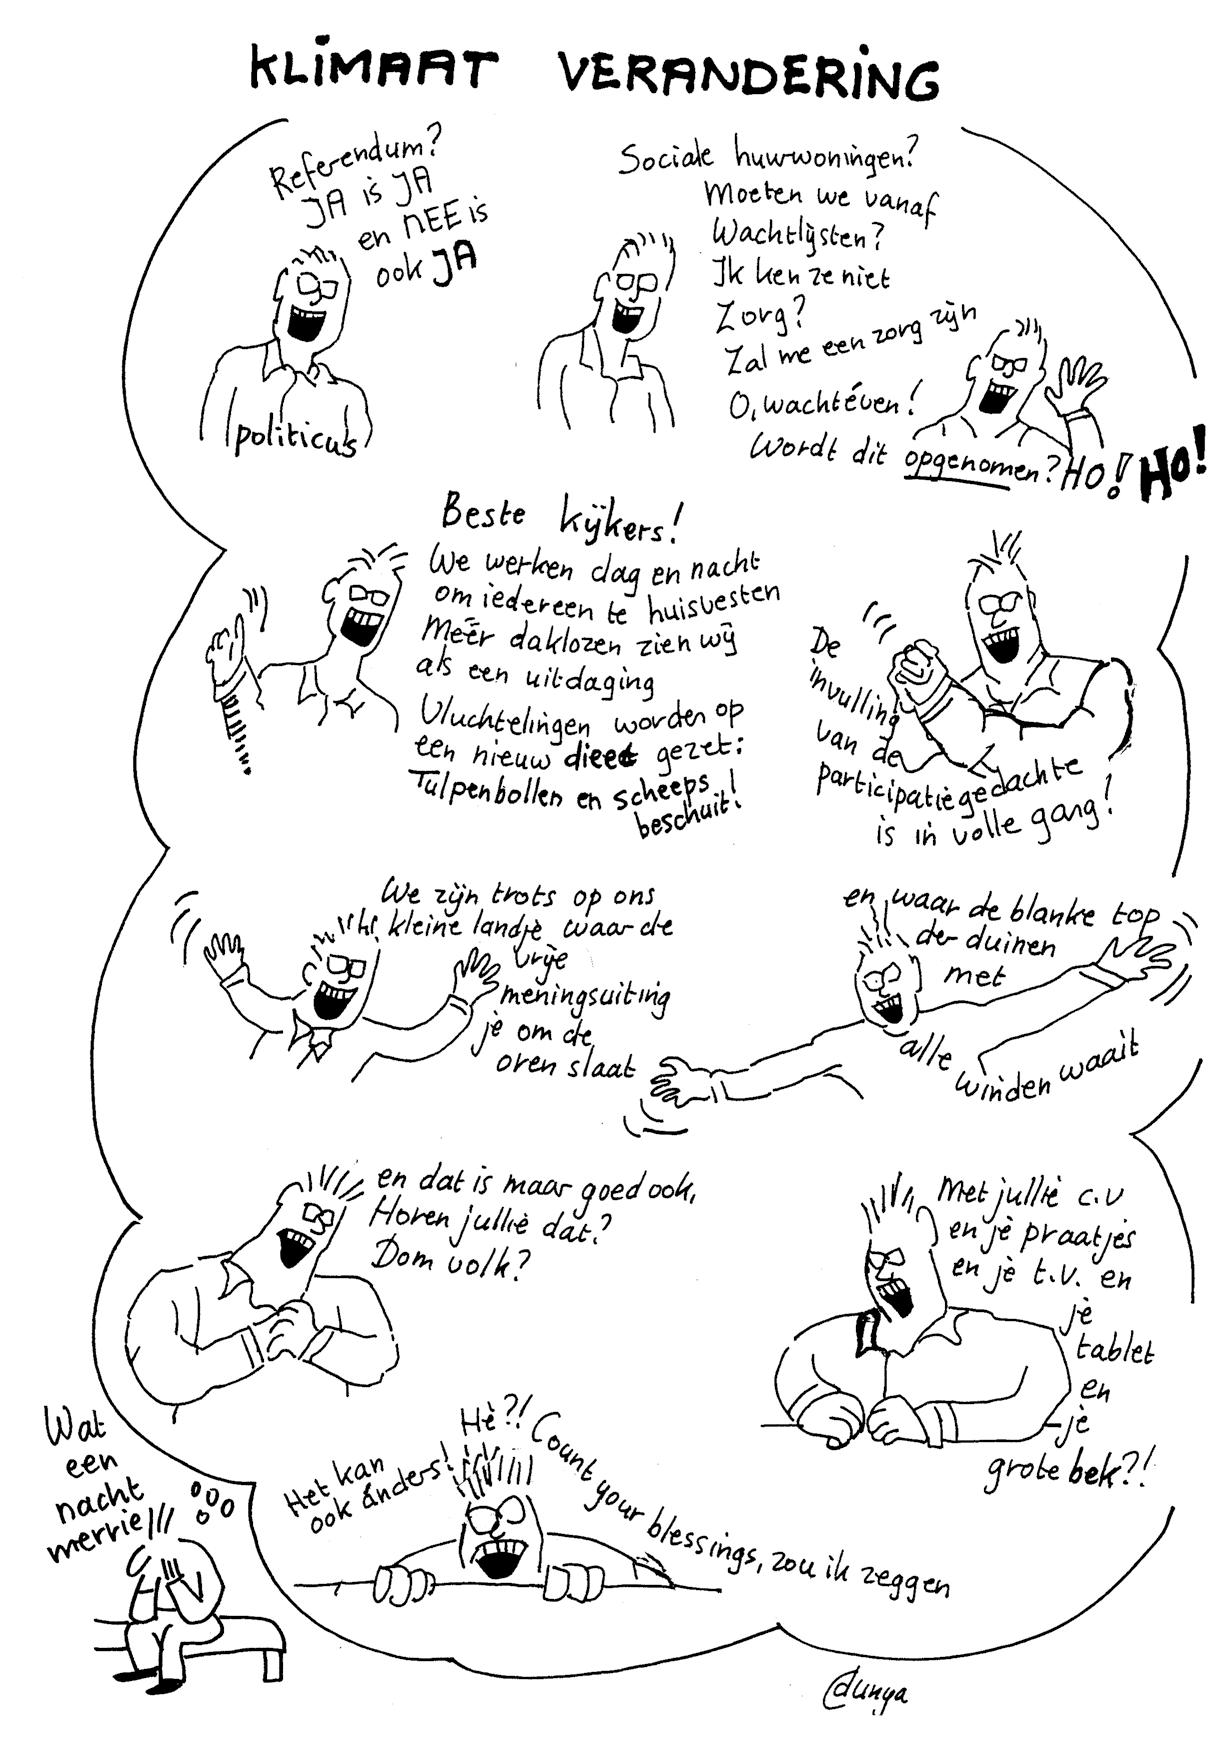 KLIMAAT VERANDERING
Referendum?
JA is JA
en NEE is
ook JA
politicus
Sociale huurwoningen?
Moeten we vanaf
Wachtlijsten?
Ik ken ze niet
Zorg?
Zal me een zorg zijn
O, wacht éven!
Wordt dit opgenomen? HO! HO!
Beste kijkers!
We werken dag en nacht
om iedereen te huisvesten
Meer daklozen zien wij
als een uitdaging
Vluchtelingen worden op
een nieuw dieet gezet:
Tulpenbollen en scheeps
beschuit!
De
invulling
van de
participatiegedachte
is in volle gang!
We zijn trots op ons
kleine landje waar de
vrije
meningsuiting
je om de
oren slaat
en waar de blanke top
der duinen
met
alle
winden waait
en dat is maar goed ook,
Horen jullie dat?
Dom volk?
Met jullie c.v
en je praatjes
en je t.v. en
je
tablet
en
je
grote bek?!
Hè?!
Het kan
ook ánders!
Count your blessings, zou ik zeggen
Wat
een
nacht
merrie
@dunya